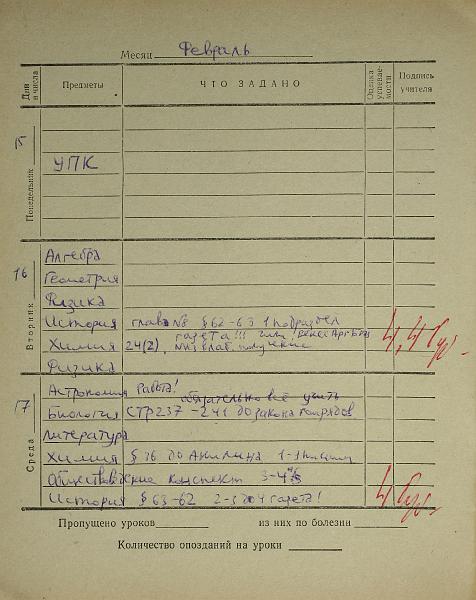 Месяц Февраль
Дни и числа Предметы ЧТО ЗАДАНО Оценка успеваемости Подпись учителя
Понедельник 15
УПК
Вторник 16
Алгебра
Геометрия
Физика
История глава №8 § 62-63 1 подраздел
газета!!! или
Химия 24(2), получение 4,4
Физика
Среда 17
Астрономия Работа!
обязательно всё учить
Биология СТР 237-241 до закона
Литература
Химия § 36 до Анилина
конспект 3-4
История § 63-62 2-3 газета! 4
Пропущено уроков из них по болезни
Количество опозданий на уроки